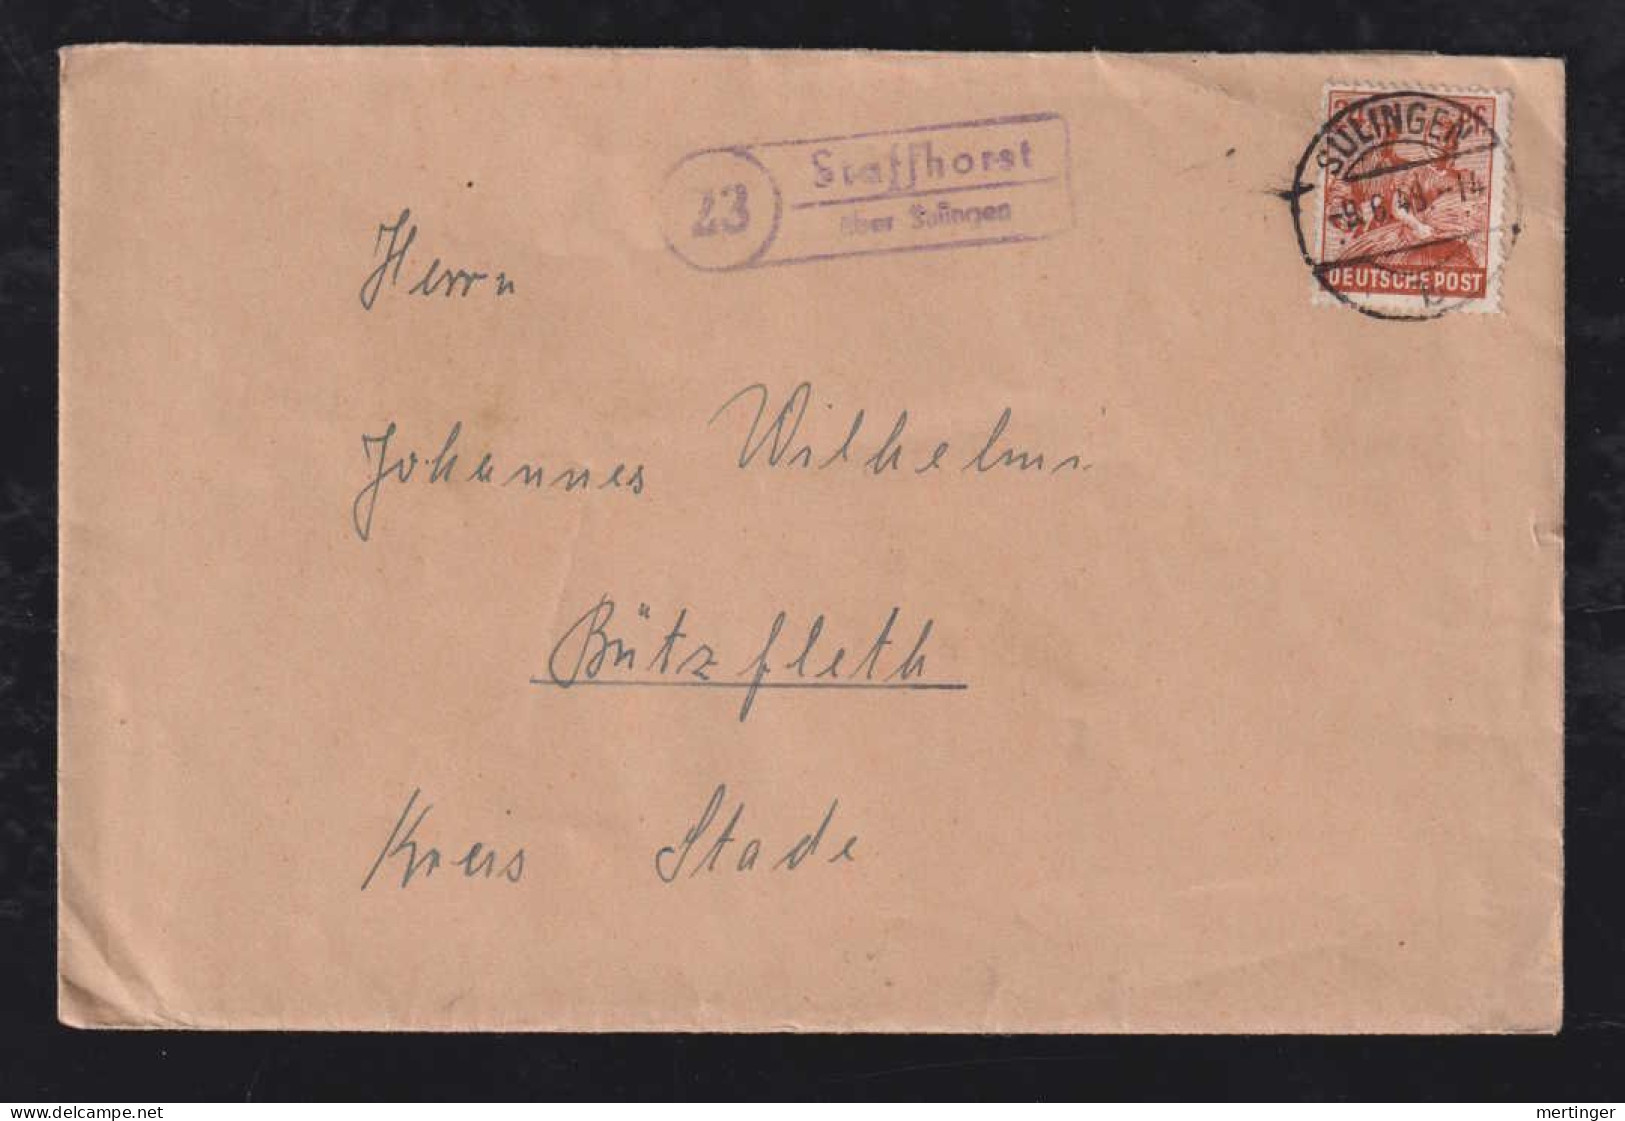 23
Staffhorst
über Sulingen
SULINGEN
9.6.48.-14
DEUTSCHE POST
b
Herrn
Johannes Wilhelmi
Bützfleth
Kreis Stade
delcampe.net
mertinger